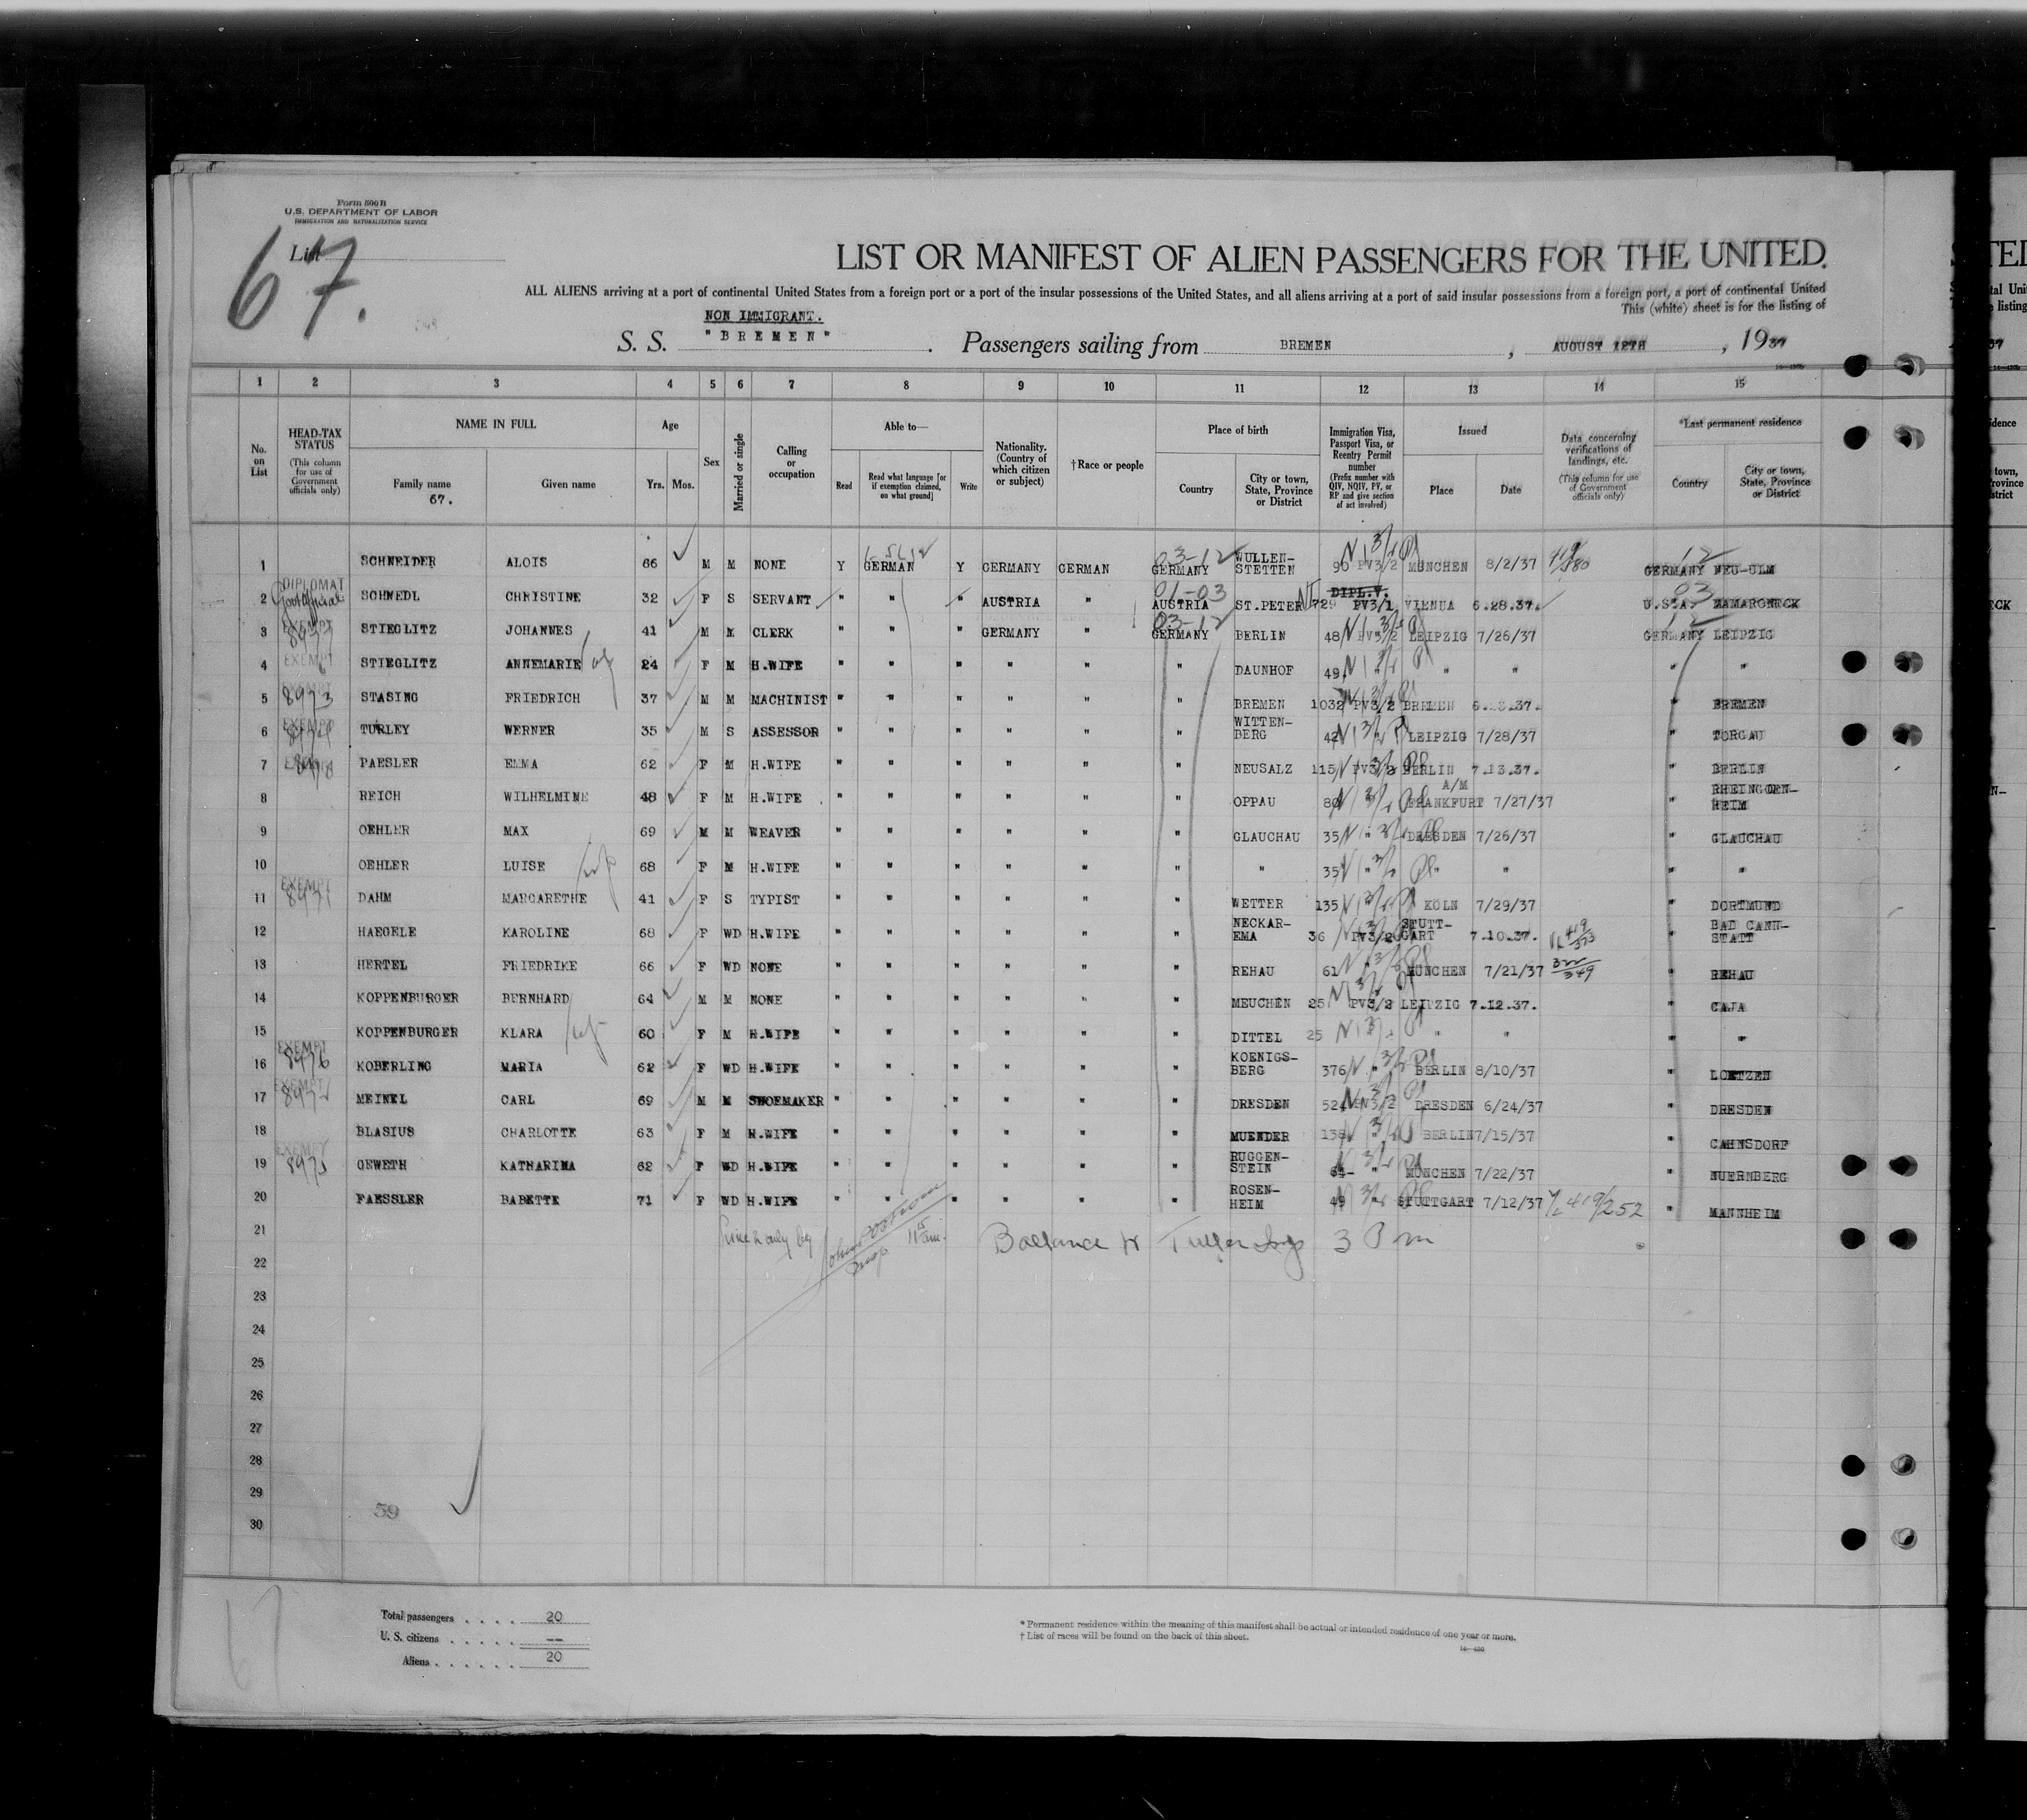 Form 500 B
U.S. DEPARTMENT OF LABOR
IMMIGRATION AND NATURALIZATION SERVICE
List
67.
LIST OR MANIFEST OF ALIEN PASSENGERS FOR THE UNITED
ALL ALIENS arriving at a port of continental United States from a foreign port or a port of the insular possessions of the United States, and all aliens arriving at a port of said insular possessions from a foreign port, a port of continental United
This (white) sheet is for the listing of
NON IMMIGRANT.
S. S. "BREMEN" . Passengers sailing from BREMEN , AUGUST 12TH , 1937
1 2 3 4 5 6 7 8 9 10 11 12 13 14 15
No. on List
HEAD-TAX STATUS (This column for use of Government officials only)
NAME IN FULL Family name 67. Given name
Age Yrs. Mos.
Sex
Married or single
Calling or occupation
Able to— Read Read what language [or if exemption claimed, on what ground] Write
Nationality. (Country of which citizen or subject)
†Race or people
Place of birth Country City or town, State, Province or District
Immigration Visa, Passport Visa, or Reentry Permit number (Prefix number with QIV, NQIV, PV, or RP and give section of act involved)
Issued Place Date
Data concerning verifications of landings, etc. (This column for use of Government officials only)
*Last permanent residence Country City or town, State, Province or District
1 SCHNEIDER ALOIS 66 M M NONE Y GERMAN Y GERMANY GERMAN 03-12 GERMANY WULLEN-STETTEN 90 PV3/2 MÜNCHEN 8/2/37 419/380 12 GERMANY NEU-ULM
2 DIPLOMAT SCHWEDL CHRISTINE 32 F S SERVANT " " " AUSTRIA " 01-03 AUSTRIA ST.PETER 729 DIPL.V. PV3/1 VIENNA 6.28.37. 03 U.S.A. MAMARONECK
3 EXEMPT STIEGLITZ JOHANNES 41 M M CLERK " " " GERMANY " 03-12 GERMANY BERLIN 48 PV3/2 LEIPZIG 7/26/37 12 GERMANY LEIPZIG
4 EXEMPT STIEGLITZ ANNEMARIE 24 F M H.WIFE " " " " " " DAUNHOF 49 " " " " "
5 EXEMPT 8973 STASING FRIEDRICH 37 M M MACHINIST " " " " " " BREMEN 1032 PV3/2 BREMEN " BREMEN
6 EXEMPT TURLEY WERNER 35 M S ASSESSOR " " " " " " WITTEN-BERG 42 " LEIPZIG 7/28/37 " TORGAU
7 EXEMPT PAESLER EMMA 62 F M H.WIFE " " " " " " NEUSALZ 115 PV3/2 BERLIN 7.13.37. " BERLIN
8 REICH WILHELMINE 48 F M H.WIFE " " " " " " OPPAU 80 " FRANKFURT A/M 7/27/37 " RHEINGOEN-HEIM
9 OEHLER MAX 69 M M WEAVER " " " " " " GLAUCHAU 35 " DRESDEN 7/26/37 " GLAUCHAU
10 OEHLER LUISE 68 F M H.WIFE " " " " " " " 35 " " " " "
11 EXEMPT 8971 DAHM MARGARETHE 41 F S TYPIST " " " " " " WETTER 135 " KÖLN 7/29/37 " DORTMUND
12 HAEGELE KAROLINE 68 F WD H.WIFE " " " " " " NECKAR-EMA 36 PV3/2 STUTT-GART 7.10.37. " BAD CANN-STATT
13 HERTEL FRIEDRIKE 66 F WD NONE " " " " " " REHAU 61 " MÜNCHEN 7/21/37 " REHAU
14 KOPPENBURGER BERNHARD 64 M M NONE " " " " " " MEUCHEN 25 PV3/2 LEIPZIG 7.12.37. " CAJA
15 KOPPENBURGER KLARA 60 F M H.WIFE " " " " " " DITTEL 25 " " " "
16 EXEMPT 8976 KOBERLING MARIA 62 F WD H.WIFE " " " " " " KOENIGS-BERG 376 " BERLIN 8/10/37 " LOETZEN
17 EXEMPT MEINEL CARL 69 M M SHOEMAKER " " " " " " DRESDEN 524 PV3/2 DRESDEN 6/24/37 " DRESDEN
18 BLASIUS CHARLOTTE 63 F M H.WIFE " " " " " " MUENDER 138 BERLIN 7/15/37 " CAHNSDORF
19 EXEMPT 8975 OEWETH KATHARINA 62 F WD H.WIFE " " " " " " RUGGEN-STEIN 64 " MÜNCHEN 7/22/37 " NUERNBERG
20 FAESSLER BABETTE 71 F WD H.WIFE " " " " " " ROSEN-HEIM 49 " STUTTGART 7/12/37 419/252 " MANNHEIM
21 3 Pm
22
23
24
25
26
27
28
29
30
59
Total passengers . . . . 20
U. S. citizens . . . . . . —
Aliens . . . . . . 20
* Permanent residence within the meaning of this manifest shall be actual or intended residence of one year or more.
† List of races will be found on the back of this sheet.